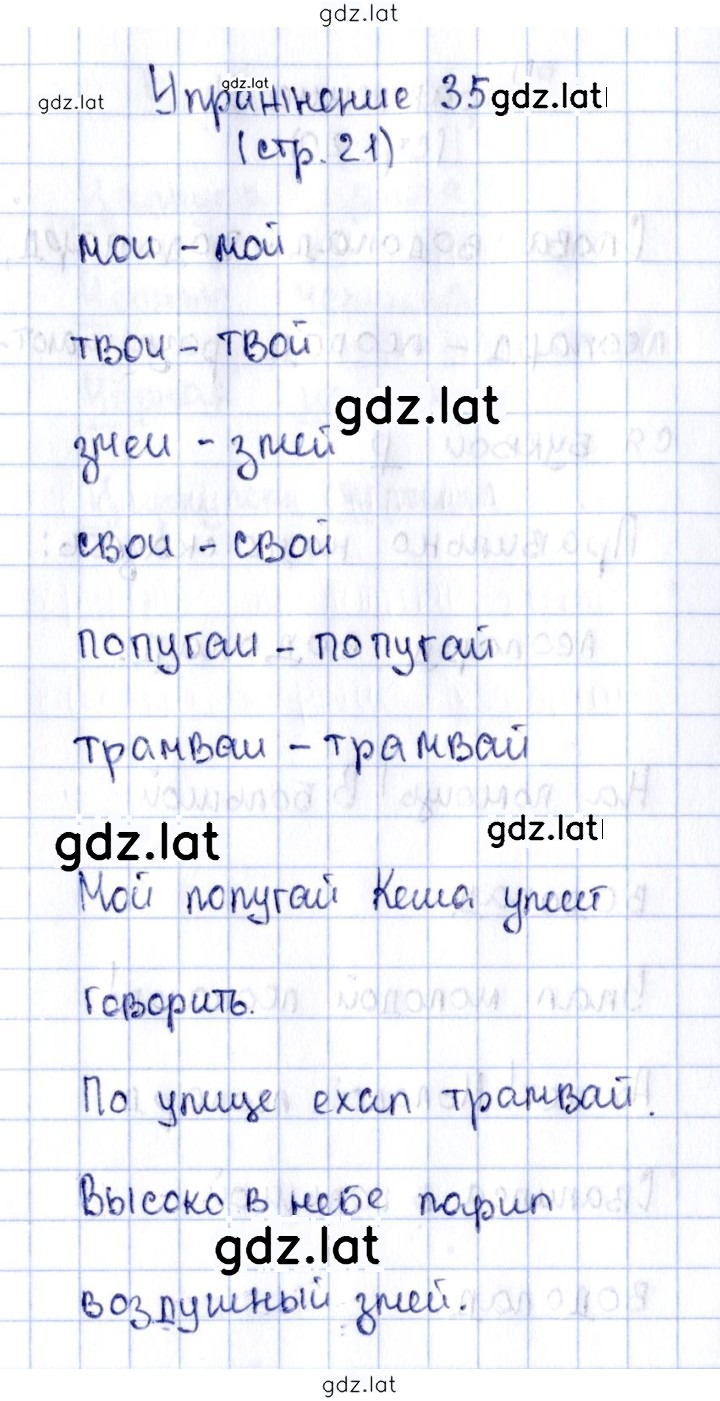 gdz.lat
gdz.lat Упражнение 35 gdz.lat
gdz.lat
(стр. 21)
мои - мой
твои - твой
gdz.lat
змеи - змей
свои - свой
попугаи - попугай
трамваи - трамвай
gdz.lat gdz.lat
Мой попугай Кеша умеет
говорить.
По улице ехал трамвай.
Высоко в небе парил
gdz.lat
воздушный змей.
gdz.lat